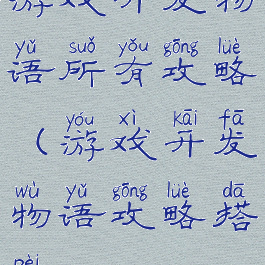 游戏开发物
yǔ suǒ yǒu gōng lüè
语所有攻略
yóu xì kāi fā
（游戏开发
wù yǔ gōng lüè dā
物语攻略搭
pèi